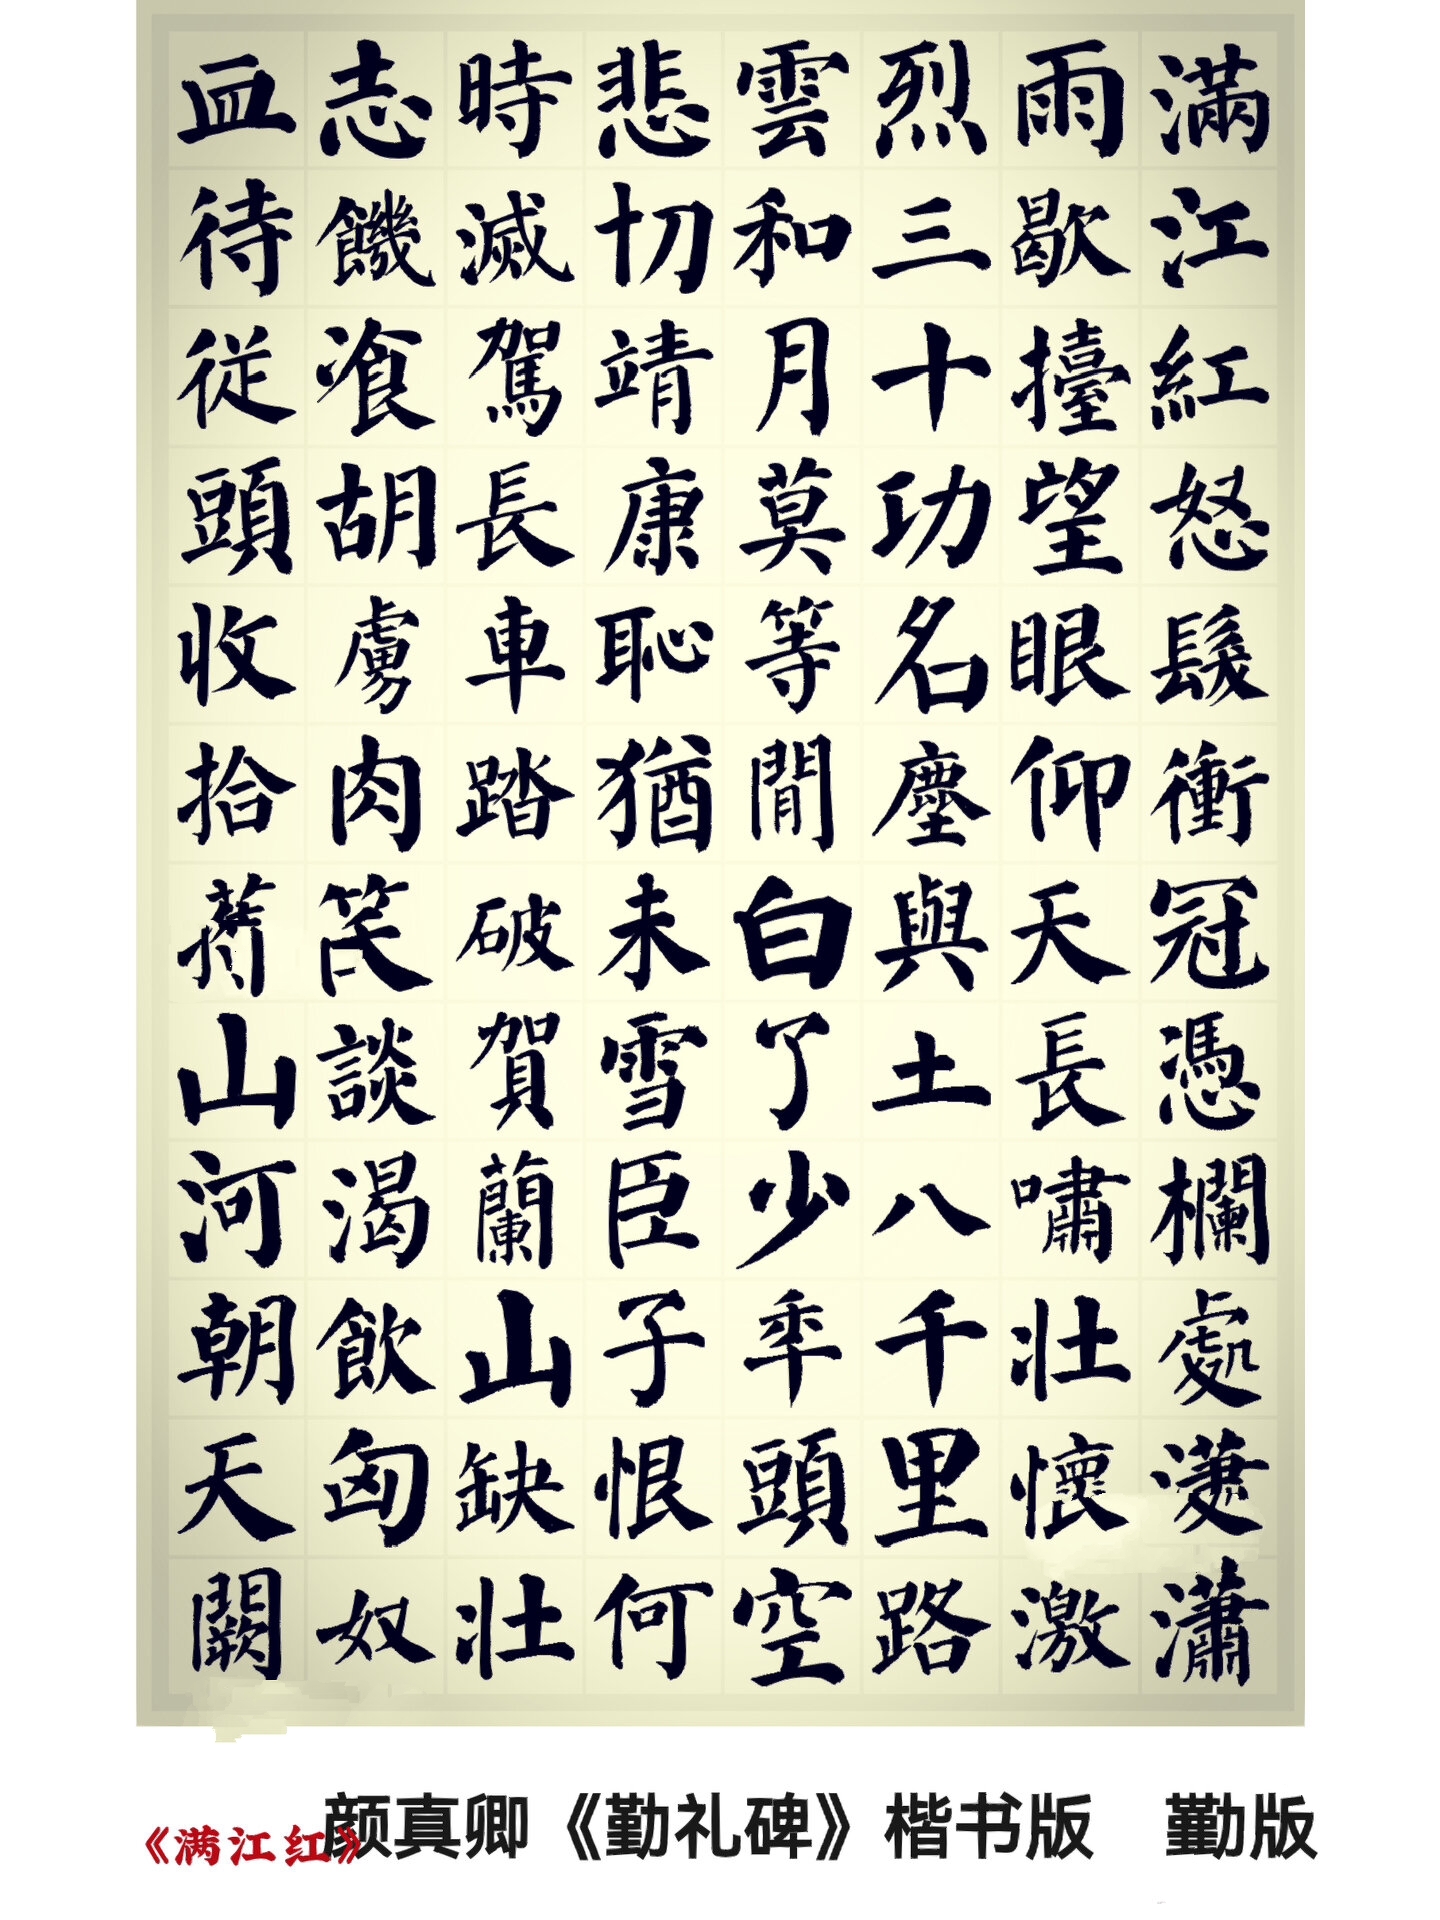 滿江紅怒髮衝冠憑欄處瀟瀟
雨歇擡望眼仰天長嘯壯懷激
烈三十功名塵與土八千里路
雲和月莫等閒白了少年頭空
悲切靖康恥猶未雪臣子恨何
時滅駕長車踏破賀蘭山缺壯
志饑飡胡虜肉笑談渴飲匈奴
血待従頭收拾舊山河朝天闕
《满江红》颜真卿《勤礼碑》楷书版 版